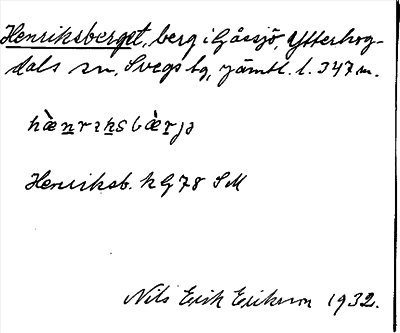 Henriksberget, berg i Gåssjö, Ytterhog-
dals sn, Svegs tg, Jämtl. l. 347 m.
hæ̀nrɪksbæ̀rjə
Henriksb. k G 78 SM
Nils Erik Eriksson 1932.